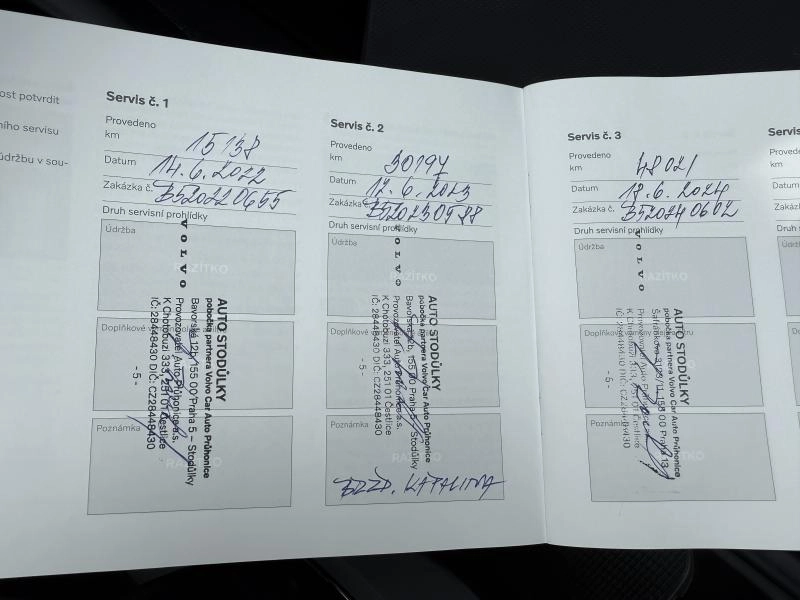 ost potvrdit
ního servisu
údržbu v sou-
Servis č. 1
Provedeno
km 15 138
Datum 14.6.2022
Zakázka č. B520220655
Druh servisní prohlídky
Údržba
RAZÍTKO
VOLVO
AUTO STODŮLKY
pobočka partnera Volvo Car Auto Průhonice
Bavorská 12b, 155 00 Praha 5 – Stodůlky
Provozovatel Auto Průhonice a.s.
K Chotobuzi 333, 251 01 Čestlice
IČ: 28448430 DIČ: CZ28448430
- 5 -
Doplňkové
Poznámka
Servis č. 2
Provedeno
km 30197
Datum 12.6.2023
Zakázka
Druh servisní prohlídky
Údržba
RAZÍTKO
VOLVO
AUTO STODŮLKY
pobočka partnera Volvo Car Auto Průhonice
Bavorská 12b, 155 00 Praha 5 – Stodůlky
Provozovatel Auto Průhonice a.s.
K Chotobuzi 333, 251 01 Čestlice
IČ: 28448430 DIČ: CZ28448430
- 5 -
Doplňkové
Poznámka
RAZÍTKO
BRZD. KAPALINA
Servis č. 3
Provedeno
km 48021
Datum 18.6.2024
Zakázka č. B520240602
Druh servisní prohlídky
Údržba
RAZÍTKO
VOLVO
AUTO STODŮLKY
pobočka partnera Volvo Car Auto Průhonice
Šafránkova 3128/11, 155 00 Praha 13
Provozovatel Auto Průhonice
K Chotobuzi 333, 251 01 Čestlice
IČ: 28448430 DIČ: CZ28448430
- 5 -
Doplňkové
Poznámka
RAZÍTKO
Servis
Provede
km
Datum
Zakázka
Druh se
Údržba